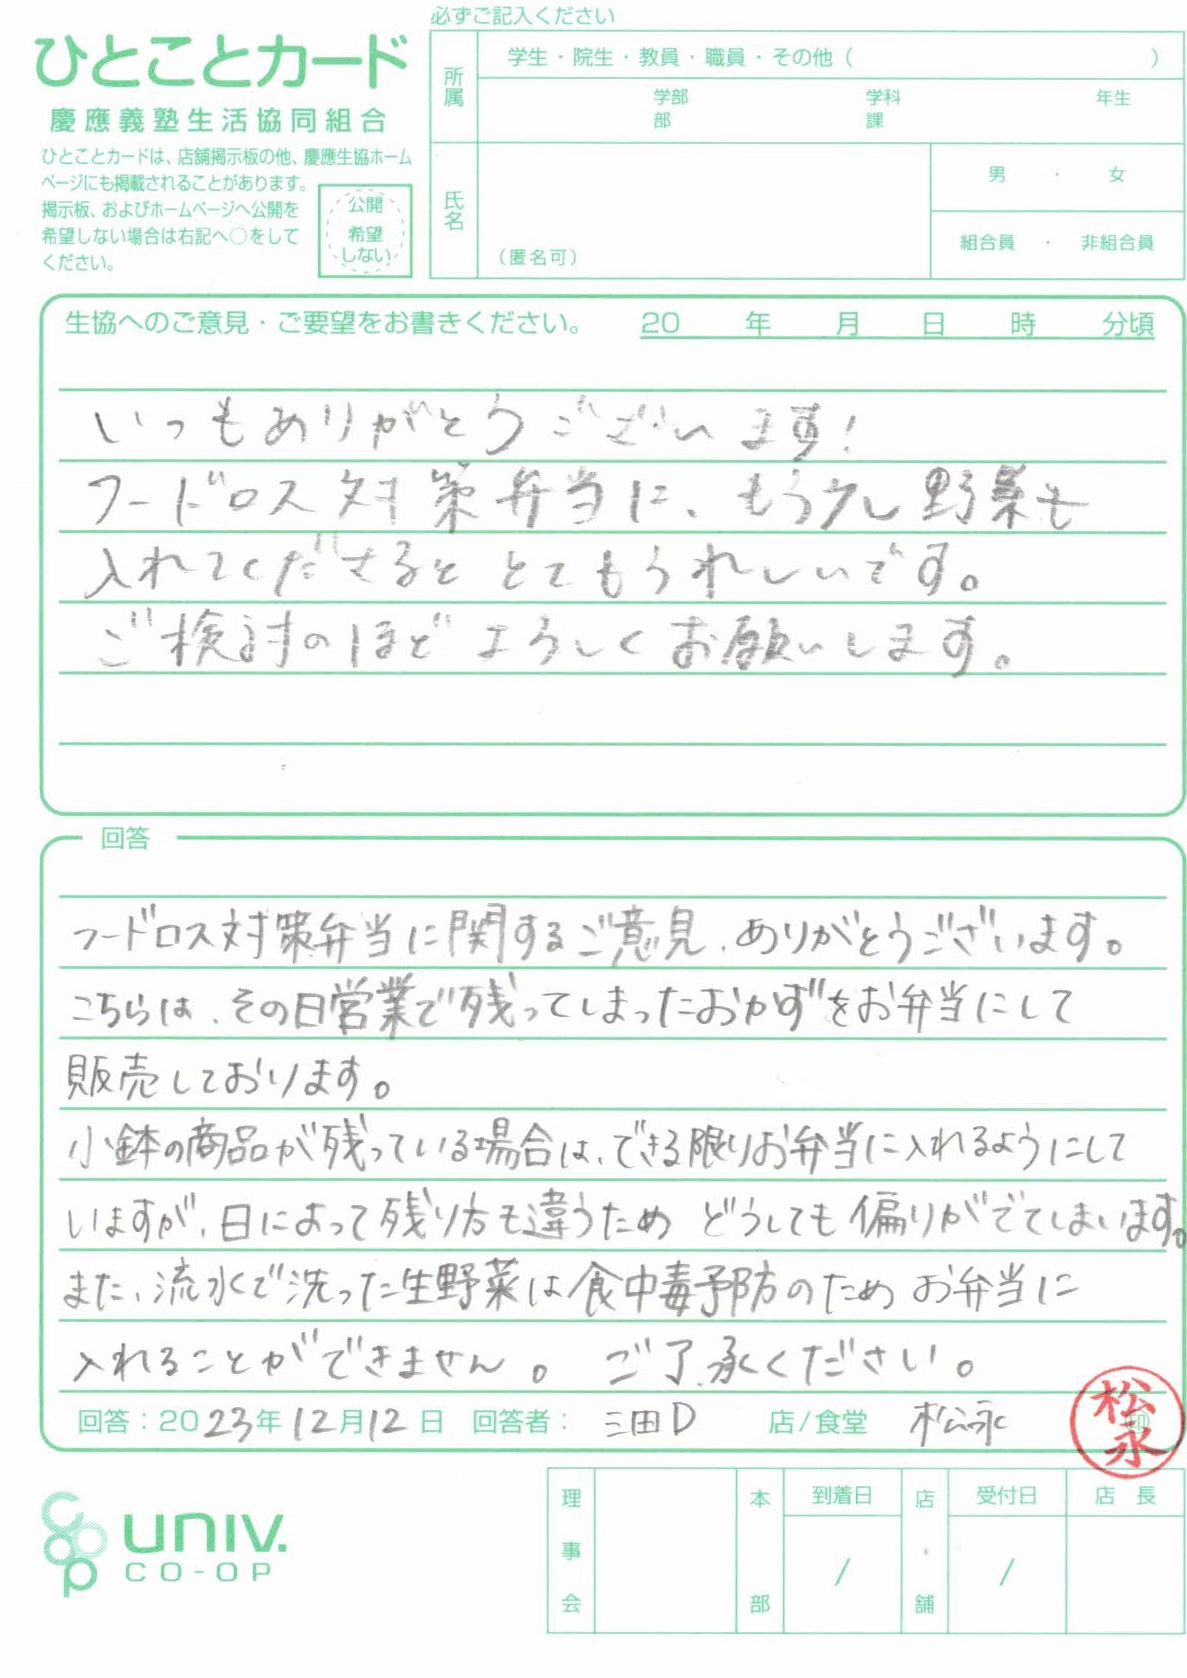 必ずご記入ください
ひとことカード
慶應義塾生活協同組合
ひとことカードは、店舗掲示板の他、慶應生協ホーム
ページにも掲載されることがあります。
掲示板、およびホームページへ公開を
希望しない場合は右記へ○をして
ください。
公開
希望
しない
所属
学生・院生・教員・職員・その他（ ）
学部 学科 年生
部 課
氏名
（匿名可）
男 ・ 女
組合員 ・ 非組合員
生協へのご意見・ご要望をお書きください。 20 年 月 日 時 分頃
いつもありがとうございます!
フードロス対策弁当に、もう少し野菜も
入れてくださると とてもうれしいです。
ご検討のほど よろしくお願いします。
回答
フードロス対策弁当に関するご意見、ありがとうございます。
こちらは、その日営業で残ってしまったおかずをお弁当にして
販売しております。
小鉢の商品が残っている場合は、できる限りお弁当に入れるようにして
いますが、日によって残り方も違うため どうしても偏りがでてしまいます。
また、流水で洗った生野菜は食中毒予防のため お弁当に
入れることができません。 ご了承ください。
回答：2023年12月12日 回答者： 三田D 店/食堂 松永 印
松永
理事会
本部
到着日
/
店・舗
受付日
/
店長
coop
univ.
CO-OP